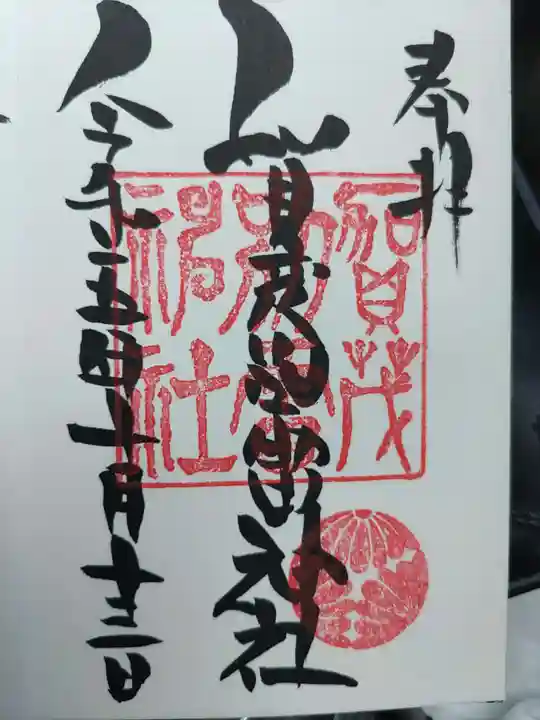 奉拝
賀茂別雷神社
賀茂
別雷
神社
令和五年十月十三日